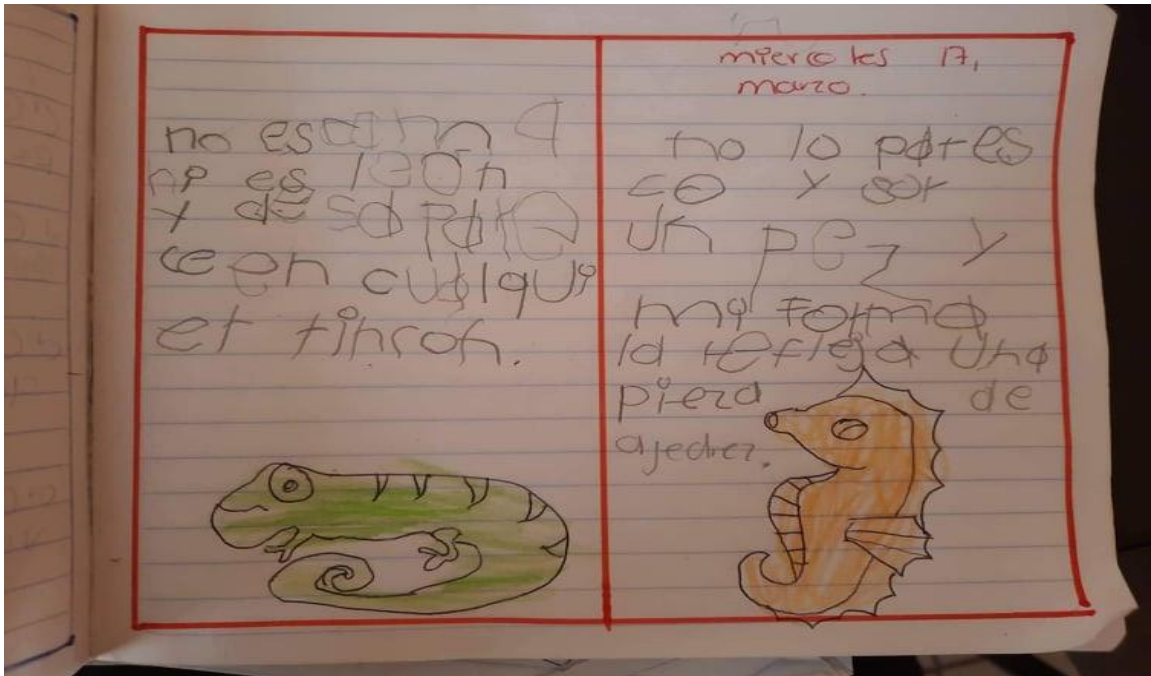 no es cama
ni es león
y desapare
ce en cualqui
er rincon.
miercoles 17,
marzo.
no lo pares
co y soy
un pez y
mi forma
la refleja una
pieza de
ajedrez.